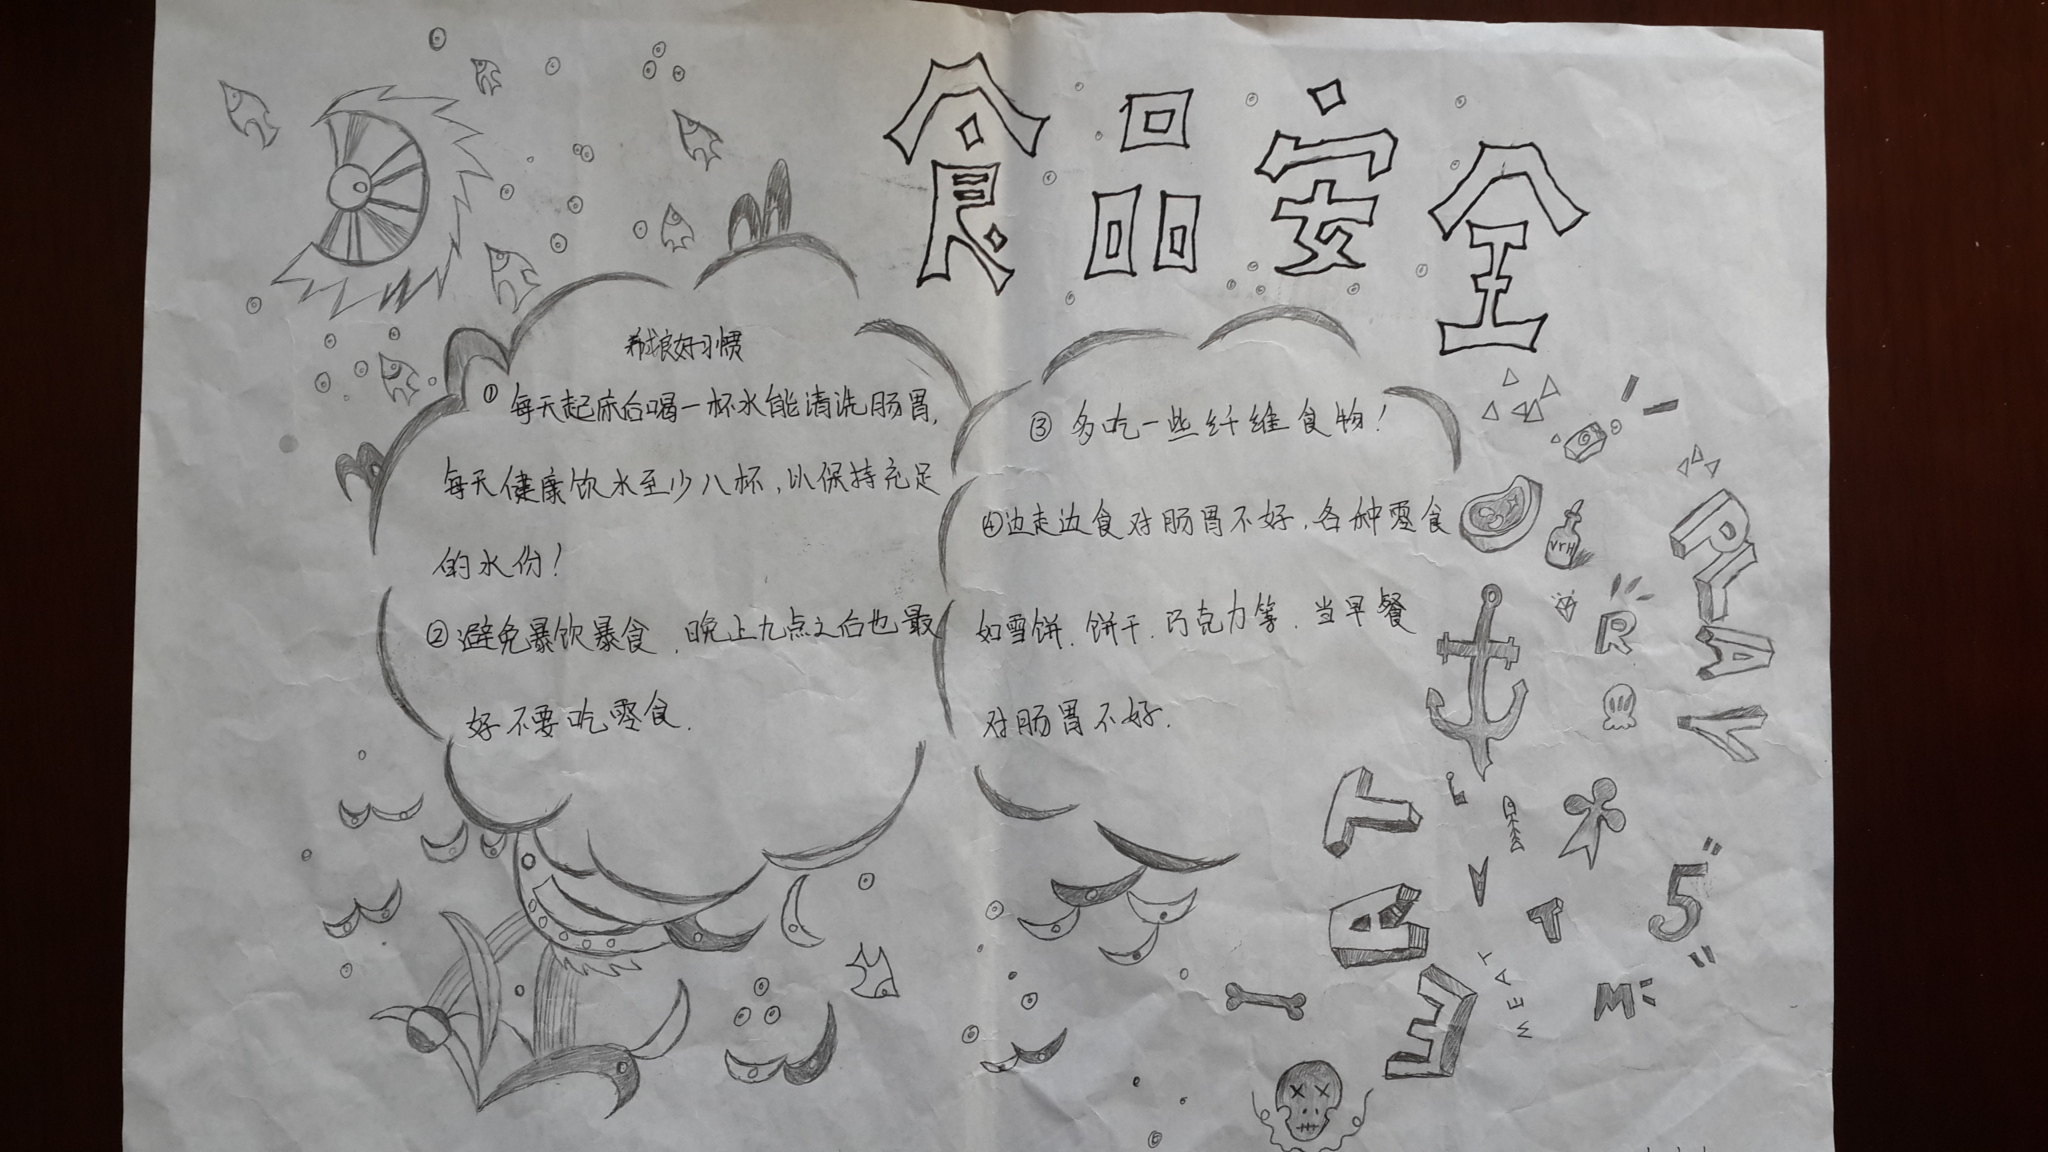 食品安全
养成良好习惯
① 每天起床后喝一杯水能清洗肠胃,
每天健康饮水至少八杯,以保持充足
的水份!
② 避免暴饮暴食,晚上九点之后也最
好不要吃零食.
③ 多吃一些纤维食物!
④边走边食对肠胃不好,各种零食
如雪饼.饼干.巧克力等.当早餐
对肠胃不好.
PLAY
R
T
B
E
V
T
5
M
MEAT